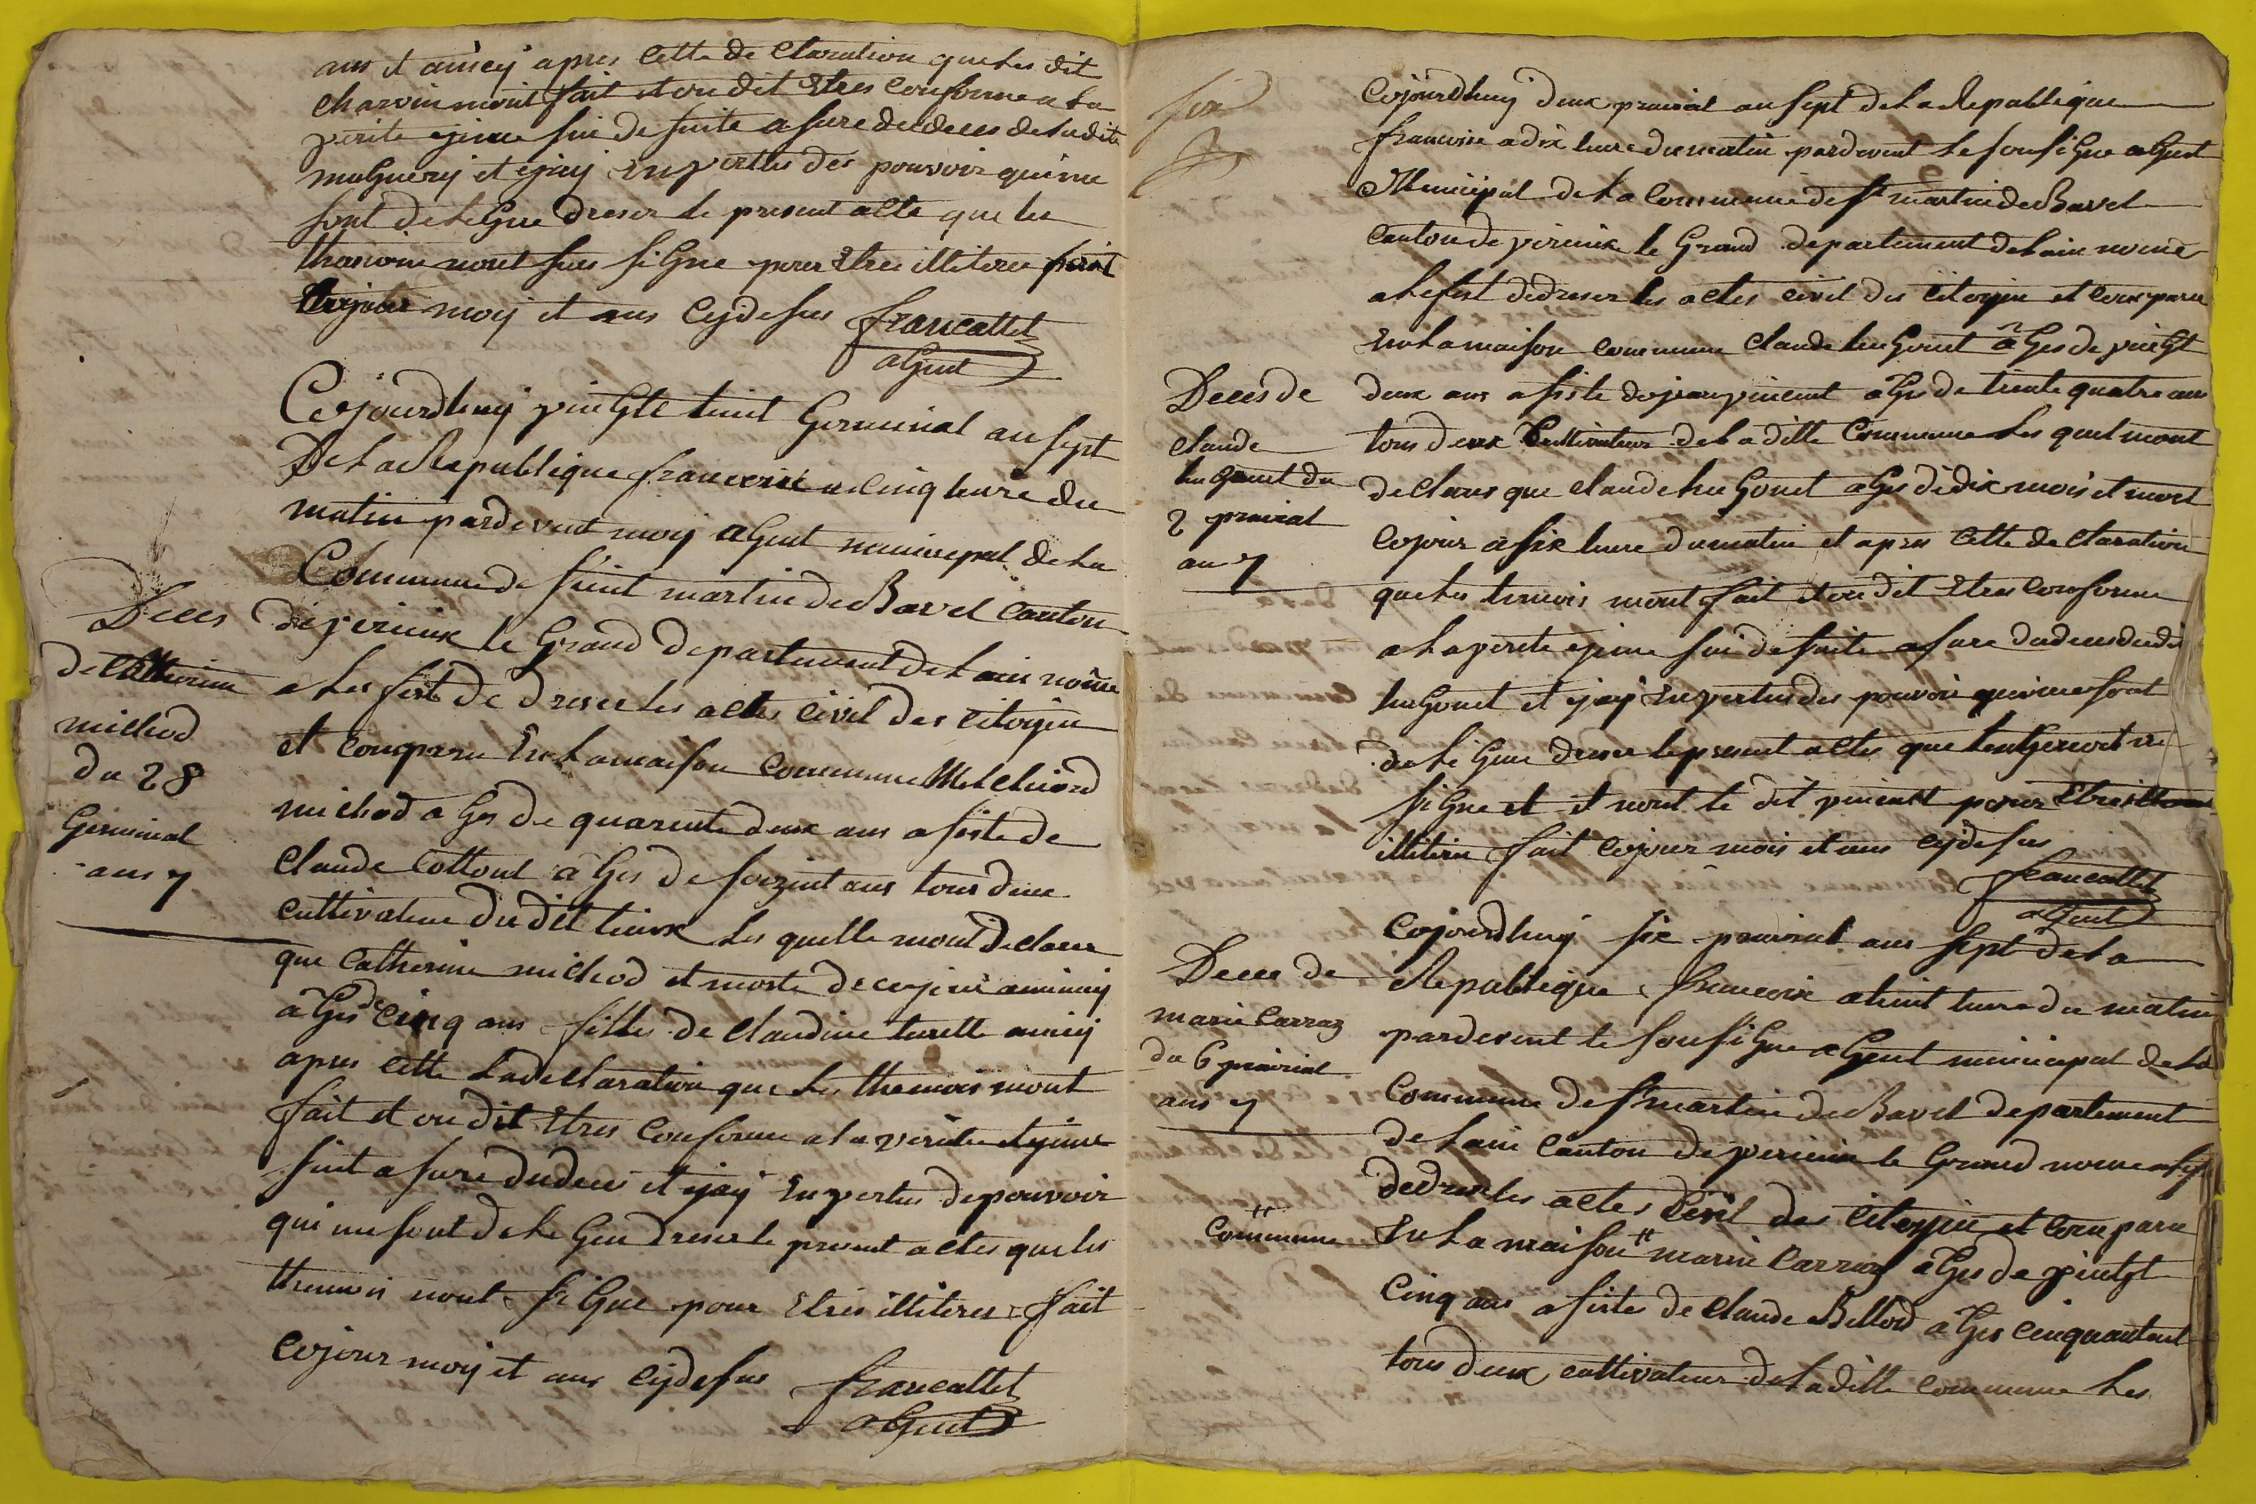 ans et aincy apres cette de Claration que Les dit
Charvin mont fait et on dit Etres Conforme a La
verite ejeme sui de suite asure du deces de Ladite
muGuery et ejay En vertus des pouvoir quime
sont deLeGue dreser Le present acte que les
thasmoin nont seus siGne pour Etres illiteres
Cejour moij et ans Cy desus francallet
aGent
Cejourdhuy vinGte huit Germinal an sept
De La Republique francoise a cinq heure du
matin pardevent moy aGent municipal de La
Commune de saint martin de Bavel Canton
de virieux le Grand departement de Lain nomme
a Les fest de dreser les actes Civil des Citoyen
et Comparu En La maison Commune Melchiord
michod aGes de quarante deux ans asiste de
Claude Cottout aGes de soizent ans tous deux
Cultivateur du dit lieux Les quelle mont declarer
que Catherine michod et morte de cejour aminuy
aGes de Cinq ans fille de Claudine turell aincy
apres Cette La declaration que Les themois mont
fait et on dit Etres Conforme a la verite et ejeme
suit asure du deces et ejay En vertus de pouvoir
qui me sont deLeGue dreser le present actes que les
themois nont siGne pour Etres illiteres fait
Cejour moij et ans Cydesus francallet
aGent
Deces
de Catherine
michod
du 28
Germinal
ans 7
Cejourdhuy deux prairial an sept de La Republique
francoise a dix heure du matin pardevent Le sousiGne aGent
Municipal de La Commune de st martin de Bavel
Canton de virieux le Grand departement de Lain nome
a Lefest dedreser les actes Civil des Citoyen et Comparu
En La maison Commune Claude huGonet aGes de vinGt
deux ans asiste de jean vincent aGes de trente quatre ans
tous deux Cultivateur de La ditte Commune Les quel mont
declares que Claude huGonet aGes de dix mois et mort
Cejour a six heure du matin et apres Cette de Claration
que Les temois mont fait et on dit Etres Conforme
a La verite ejeme sui de suite asure du deces dudi
huGonet et ejay En vertus des pouvoir quime sont
deLeGue dreser le present actes que
siGne et et nont le dit vincent pour Etres
illiteres fait Cejour mois et ans cydesus
francallet
aGent
Deces de
Claude
huGonet du
2 prairial
an 7
Cejourdhuy six prairial ans sept de La
Republique francoise a huit heure du matin
pardevent le sousiGne aGent municipal de La
Commune de st martin de Bavel departement
de Lain Canton de virieux le Grand nome afest
dedreser les actes Civil des Citoyen et Comparu
En La maison # marie Carraz aGes de vintgt
Cinq ans asistes de Claude Billod aGes Cinquanteut
tous deux cultivateur de Laditte Commune Les
Deces de
marie Carraz
du 6 prairial
ans 7
# Commune